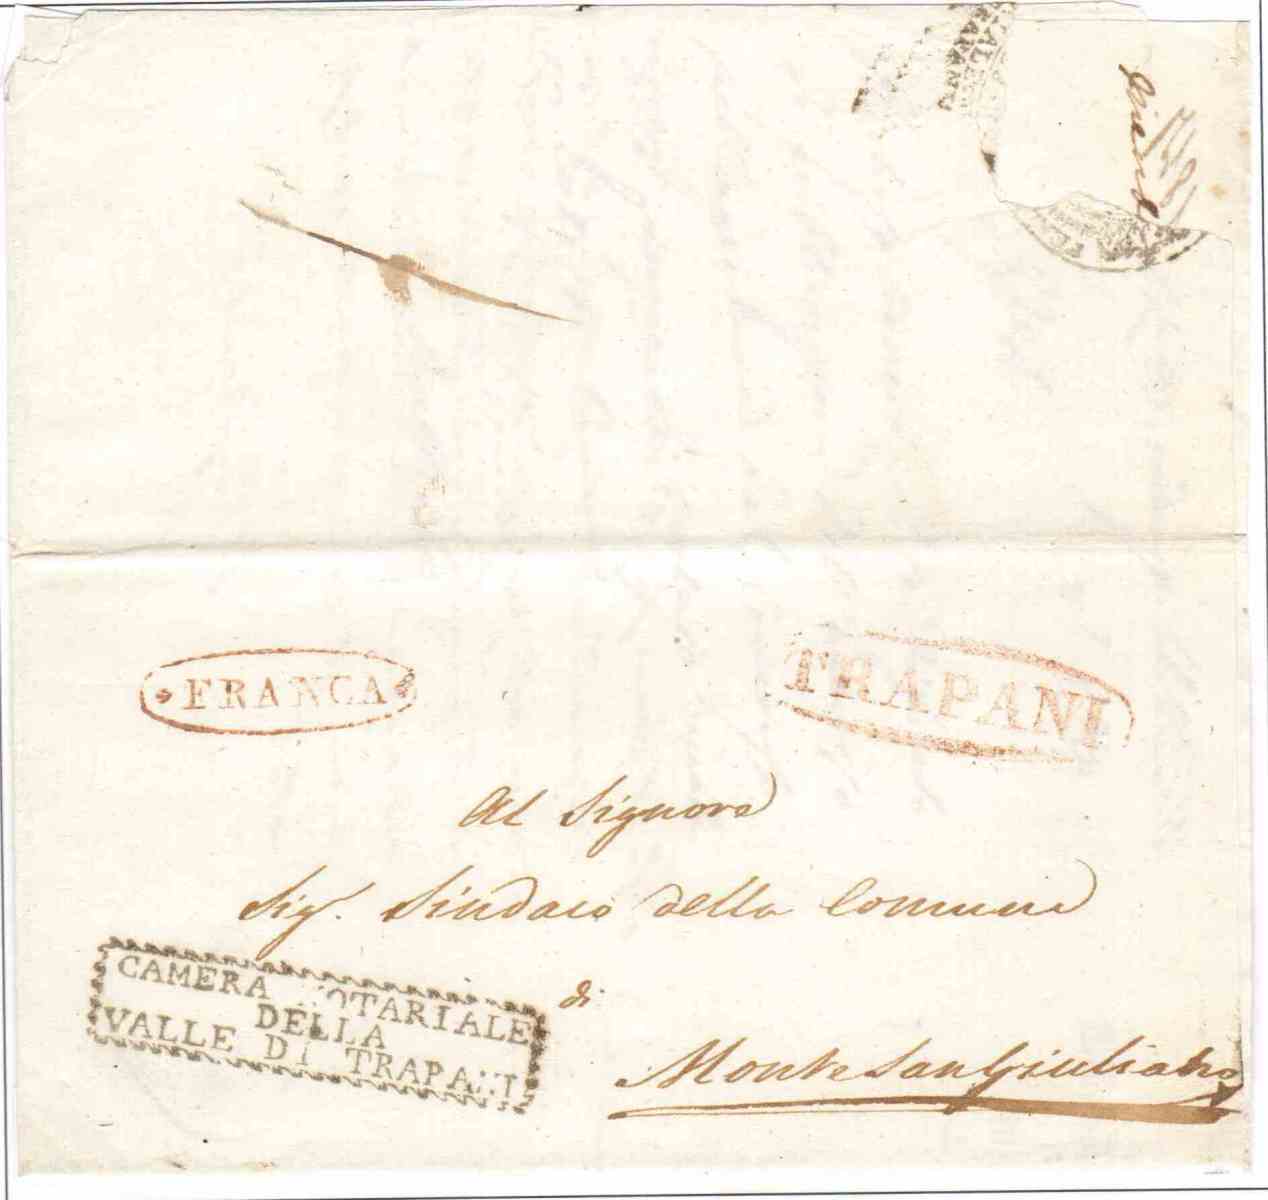 FRANCA
TRAPANI
Al Signore
Sig.r Sindaco della Comune
di
Monte San Giuliano
CAMERA NOTARIALE
DELLA
VALLE DI TRAPANI